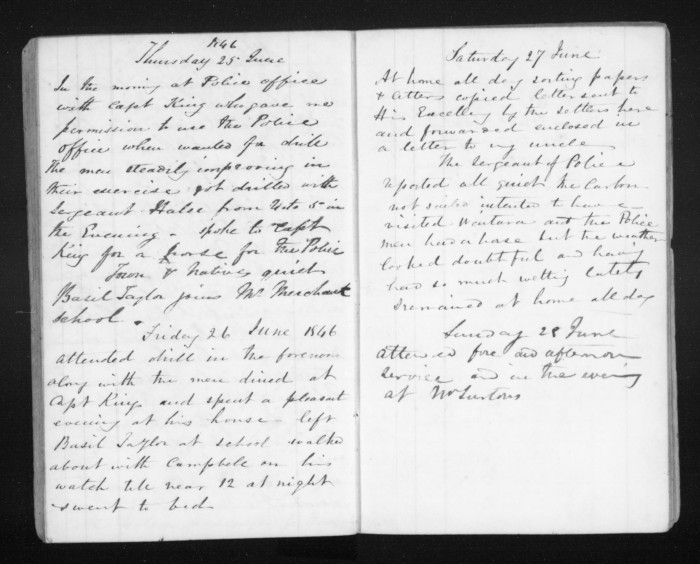 1846
Thursday 25 June
In the morning at Police office
with Capt King who gave me
permission to use the Police
office when wanted for drill
the men steadily improving in
their exercise got drilled with
Sergeant Halse from 4 to 5 in
the Evening - spoke to Capt
King for a horse for the Police
Town & Natives quiet
Basil Taylor joins Mr Merchant
school.
Friday 26 June 1846
attended drill in the forenoon
along with the men dined at
Capt Kings and spent a pleasant
evening at his house - left
Basil Taylor at school walked
about with Campbell on his
watch till near 12 at night
& went to bed
Saturday 27 June
At home all day sorting papers
& letters copied letter sent to
His Excellency by the settlers here
and forwarded enclosed in
a letter to my uncle
The Sergeant of Police
reported all quiet the
not sailed intended to have
visited Waitara and the Police
men had a horse but the weather
looked doubtful and having
had so much wetting lately
remained at home all day
Sunday 28 June
attended fore and afternoon
service and in the evening
at